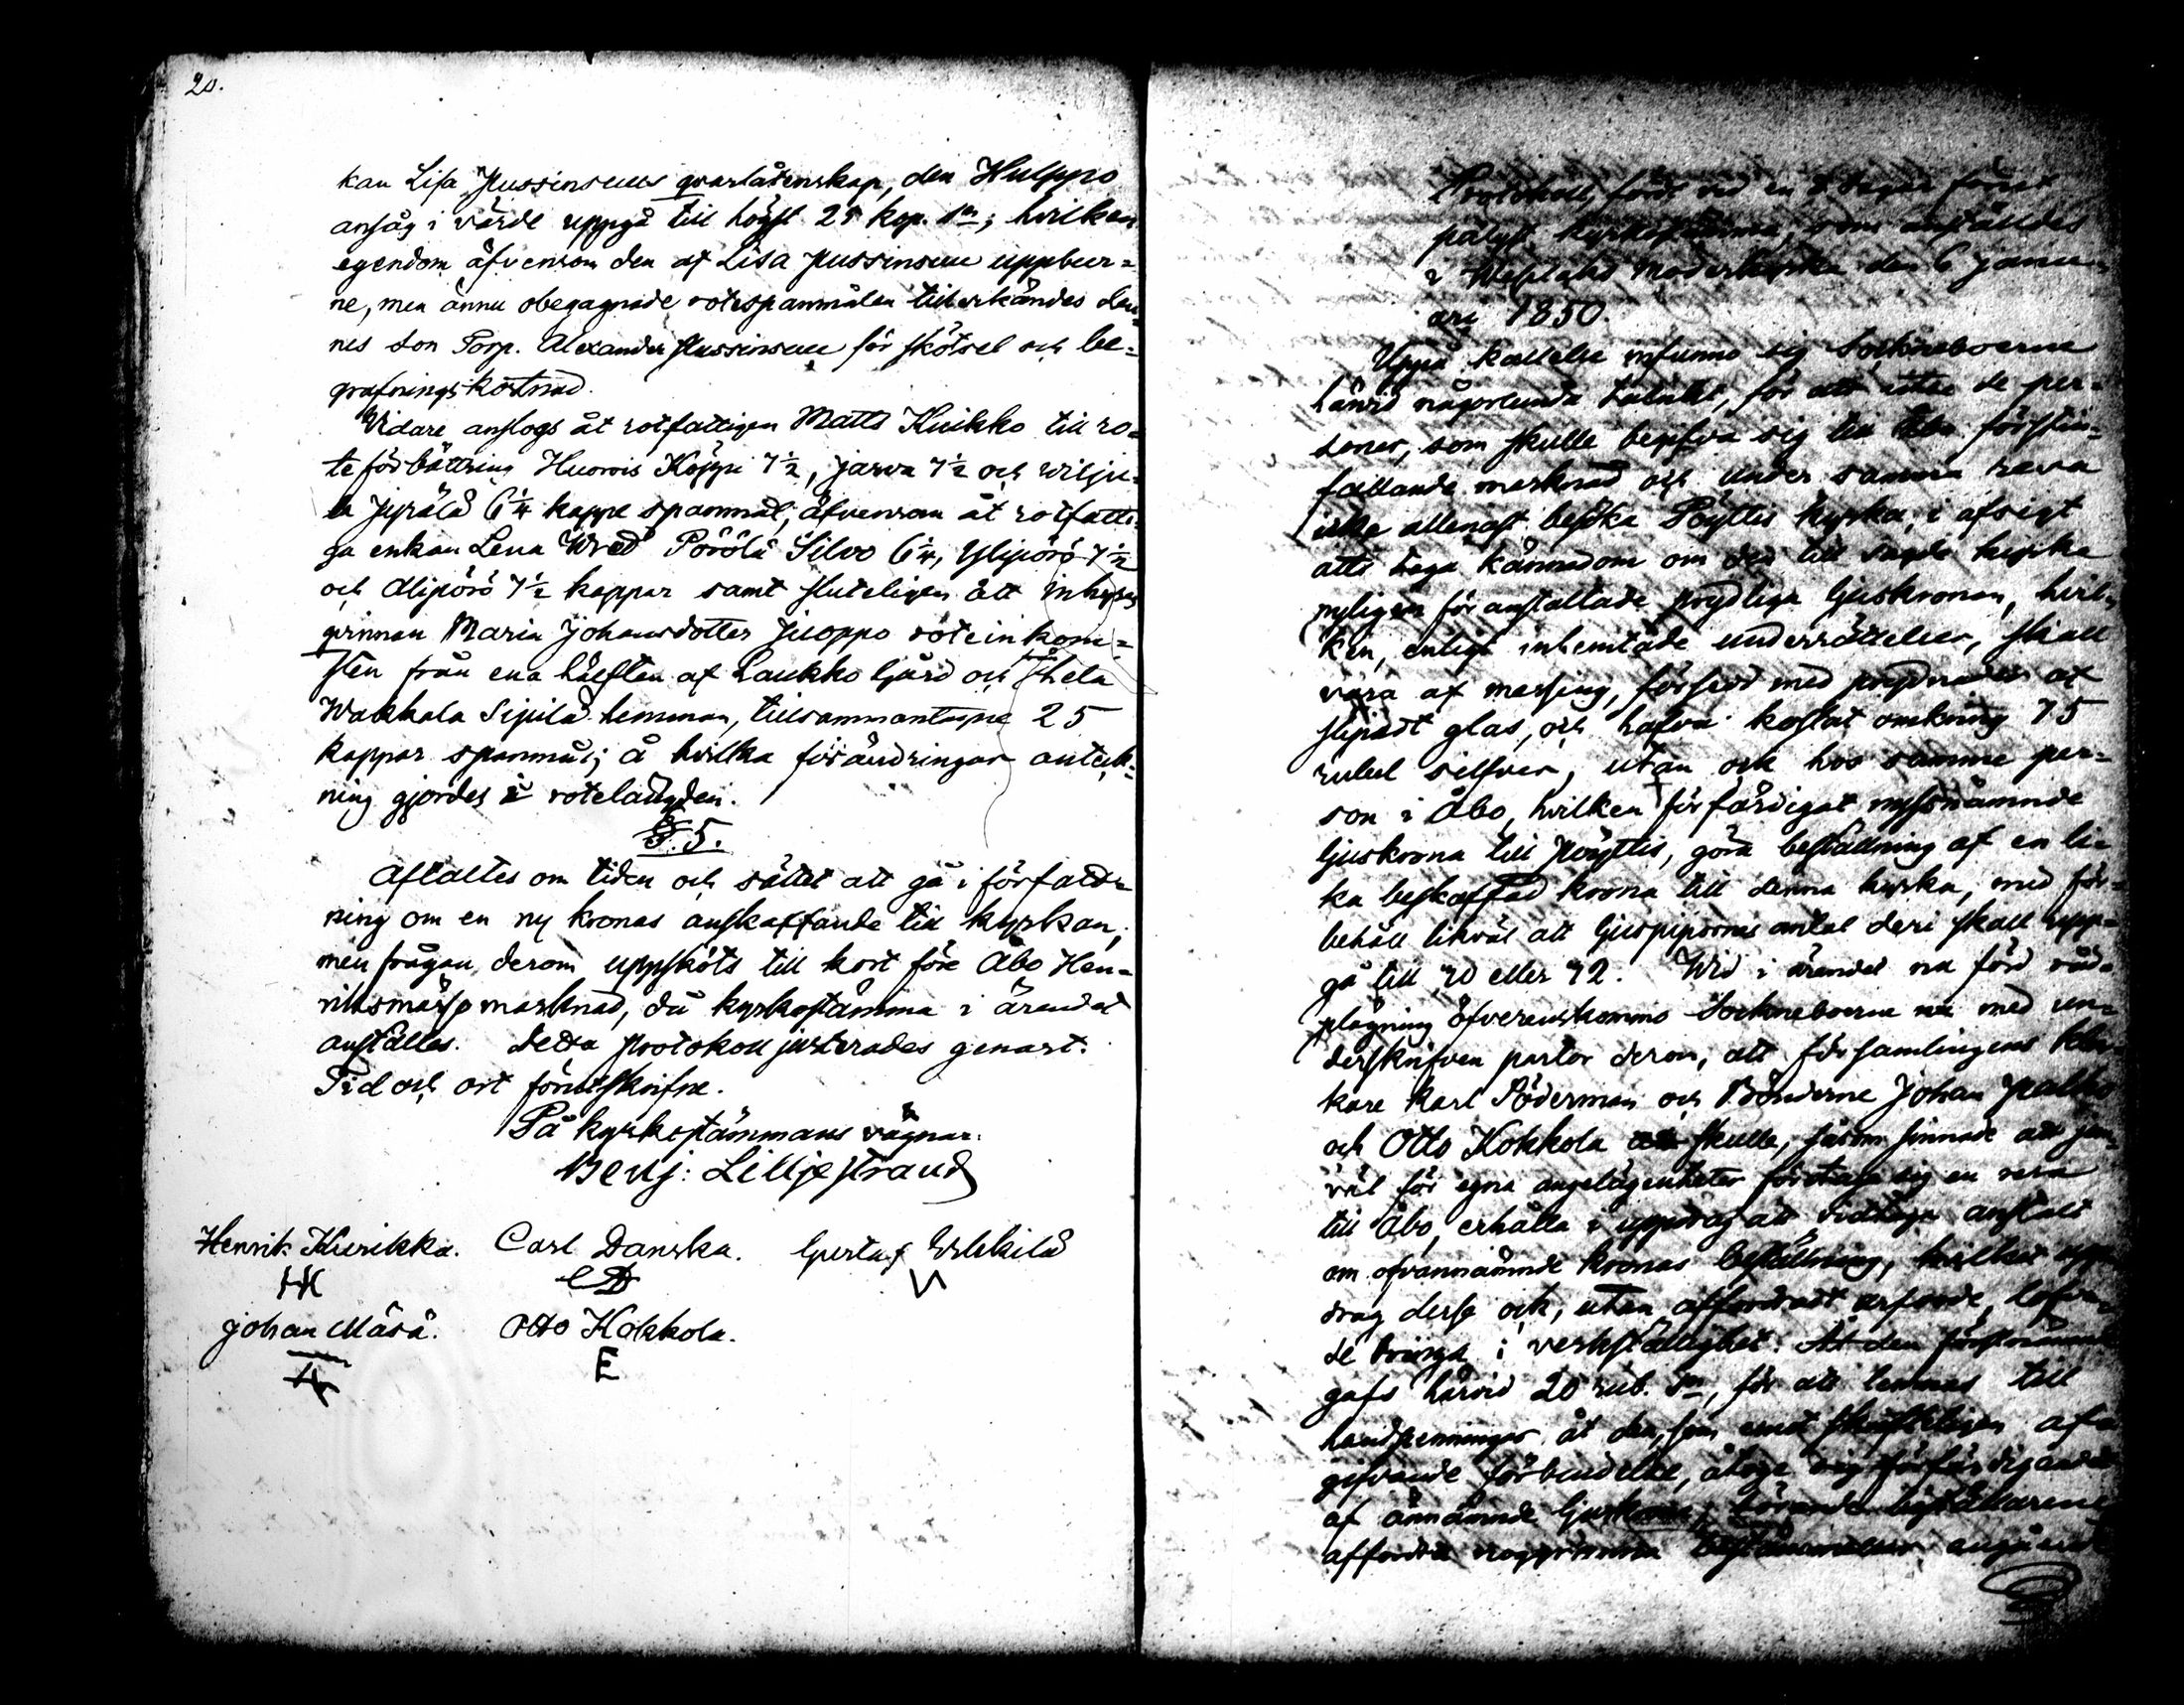 20.
kan Lisa Jussinsuus qvarlåtenskap, den Huhppo
ansåg i värde uppgå till högst 25 kop. Sr; hvilken
egendom äfvensom den af Lisa Jussinsuu uppbur-
ne, men ännu obegagnade rotespanmålen tillerkändes den-
nes son Torp. Alexander Jussinsuu för skötsel och be-
grafningskostnad.
Vidare anslogs åt rotfattigen Matts Kuikko till ro-
teförbättring Huovis Köppi 7½, Jarva 7½ och Wilju-
la Jyrälä 6¼ kappe spanmål, äfvensom åt rotfatti-
ga enkan Lena Wred Pöölä Silvo 6¼, Ylipörö 7½
och Alipörö 7½ kappar samt sluteligen åt inhyses
qvinnan Maria Johansdotter Juoppo roteinkom-
sten från ena hälften af Laukko Gård och hela
Wakkala Sipilä hemman, tillsammantagne 25
kappar spanmål; å hvilka förändringar anteck-
ning gjordes i rotelängden.
§. 5.
Aftaltes om tiden och sättet att gå i författ-
ning om en ny kronas anskaffande till kyrkan,
men frågan derom uppsköts till kort före Åbo Hen-
riksmässo marknad, då kyrkostämma i ärendet
anställes. Detta Protokoll justerades genast.
Tid och ort förutskrifne.
På kyrkostämmans vägnar:
Benj: Lilljestrand
Henrik Kurikka. Carl Danska. Gustaf Uhkilä
HK CD U
Johan Mäsä. Otto Kokkola.
E
Protokoll, fördt vid en 8 dagar förut
pålyst kyrkostämma, som anställdes
i Wesilaks Moderkyrka den 6 Janu-
ari 1850.
Uppå kallelse infunno sig Sockneboerne
härvid någorlunda talrikt, för att utse de per-
soner, som skulle begifva sig till Åbo förstin-
fallande marknad och under samma resa
icke allenast besöka Pöyttis kyrka, i afsigt
att taga kännedom om den till sagde kyrka
nyligen föranstaltade prydliga ljuskronan, hvil-
ken, enligt inhemtade underrättelser, skall
vara af messing, försedd med prydnader af
slipadt glas, och hafva kostat omkring 75
rubel silfver, utan ock hos samme per-
son i Åbo, hvilken förfärdigat nyssnämnde
ljuskrona till Pöyttis, göra beställning af en li-
ka beskaffad krona till denna kyrka, med för-
behåll likväl att ljuspipornas antal deri skall upp-
gå till 70 eller 72. Wid i ärendet nu förd råd-
plägning öfverenskommo Socknebоerne nu med un-
derskrifven pastor derom, att församlingens kloc-
kare Karl Söderman och Bönderne Johan
och Otto Kokkola skulle, såsom sinnade att jem-
väl för egna angelägenheter företaga sig en resa
till Åbo, erhålla i uppdrag att vidtaga anstalt
om ofvannämnde kronas beställning, hvilket upp-
drag desse ock, utan affordradt arfvode, lofva-
de bringa i verkställighet. Åt den förstnämnde
gafs härvid 20 rub. Sr, för att lemnas till
handpenningar åt den, som emot skriftligen af-
gifvande förbindelse, åtoge sig förfärdigandet
af ännämnde ljuskrona, börande beställarene
affordra noggranna angående